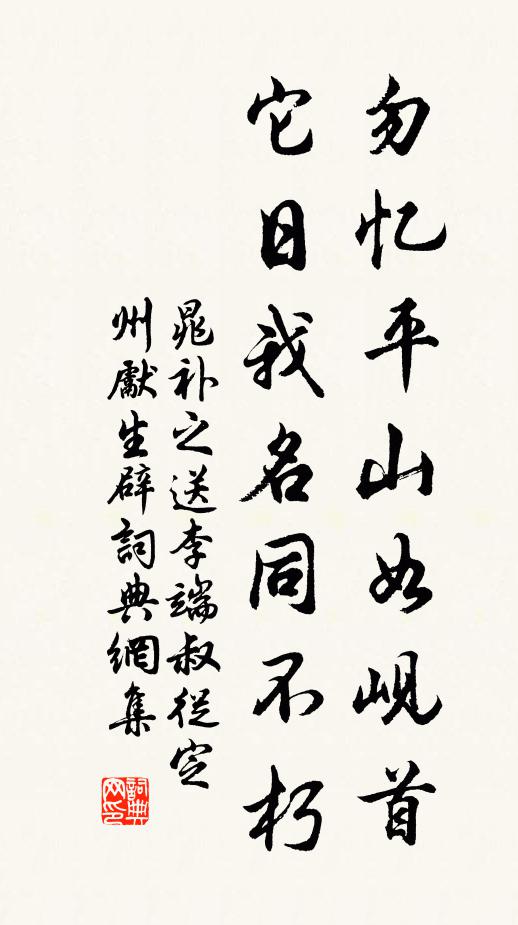 勿忆平山如岘首
它日我名同不朽
晁补之送李端叔從定
州獻生辟詞典網集
詞典
网印